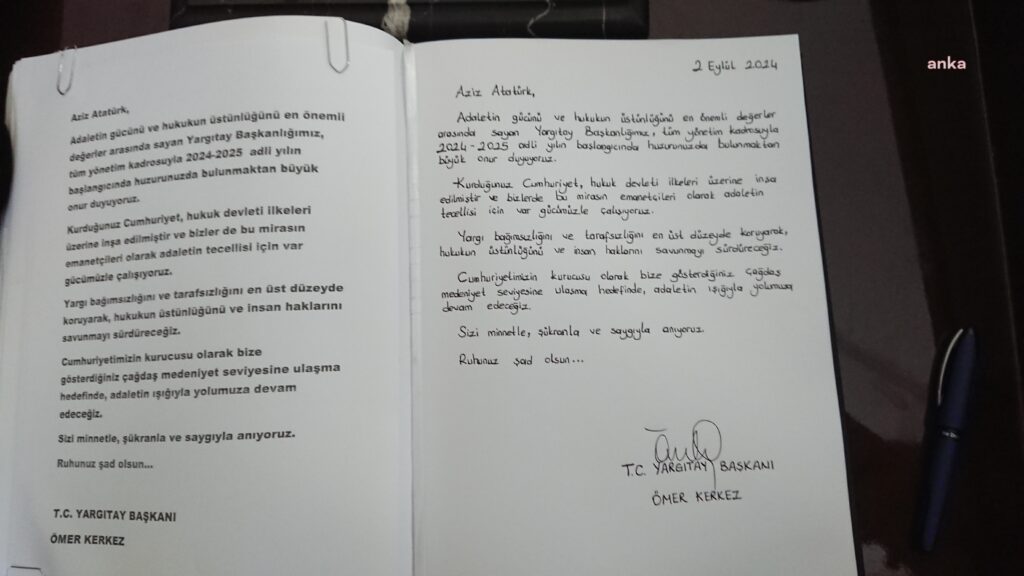 Aziz Atatürk,
Adaletin gücünü ve hukukun üstünlüğünü en önemli
değerler arasında sayan Yargıtay Başkanlığımız,
tüm yönetim kadrosuyla 2024-2025 adli yılın
başlangıcında huzurunuzda bulunmaktan büyük
onur duyuyoruz.
Kurduğunuz Cumhuriyet, hukuk devleti ilkeleri
üzerine inşa edilmiştir ve bizler de bu mirasın
emanetçileri olarak adaletin tecellisi için var
gücümüzle çalışıyoruz.
Yargı bağımsızlığını ve tarafsızlığını en üst düzeyde
koruyarak, hukukun üstünlüğünü ve insan haklarını
savunmayı sürdüreceğiz.
Cumhuriyetimizin kurucusu olarak bize
gösterdiğiniz çağdaş medeniyet seviyesine ulaşma
hedefinde, adaletin ışığıyla yolumuza devam
edeceğiz.
Sizi minnetle, şükranla ve saygıyla anıyoruz.
Ruhunuz şad olsun...
T.C. YARGITAY BAŞKANI
ÖMER KERKEZ
2 Eylül 2024
Aziz Atatürk,
Adaletin gücünü ve hukukun üstünlüğünü en önemli değerler
arasında sayan Yargıtay Başkanlığımız, tüm yönetim kadrosuyla
2024-2025 adli yılın başlangıcında huzurunuzda bulunmaktan
büyük onur duyuyoruz.
Kurduğunuz Cumhuriyet, hukuk devleti ilkeleri üzerine inşa
edilmiştir ve bizlerde bu mirasın emanetçileri olarak adaletin
tecellisi için var gücümüzle çalışıyoruz.
Yargı bağımsızlığını ve tarafsızlığını en üst düzeyde koruyarak,
hukukun üstünlüğünü ve insan haklarını savunmayı sürdüreceğiz.
Cumhuriyetimizin kurucusu olarak bize gösterdiğiniz çağdaş
medeniyet seviyesine ulaşma hedefinde, adaletin ışığıyla yolumuza
devam edeceğiz.
Sizi minnetle, şükranla ve saygıyla anıyoruz.
Ruhunuz şad olsun...
T.C. YARGITAY BAŞKANI
ÖMER KERKEZ
anka